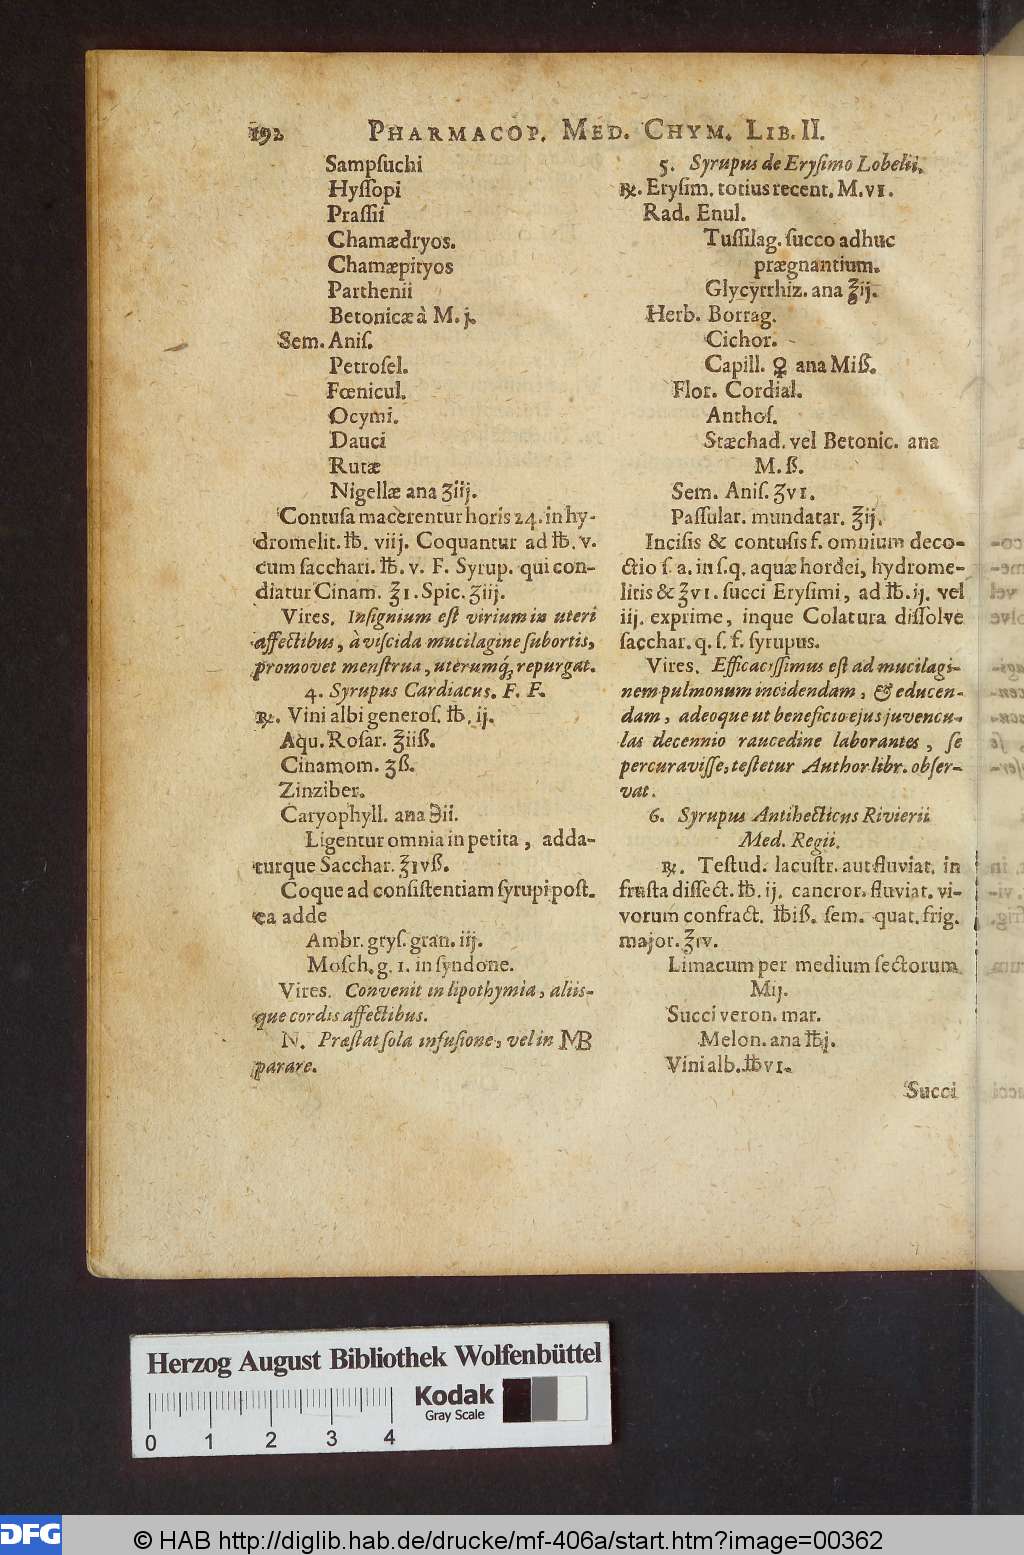 192 PHARMACOP. MED. CHYM. LIB. II.
Sampſuchi
Hyſſopi
Praſſii
Chamædryos.
Chamæpityos
Parthenii
Betonicæ à M. j.
Sem. Aniſ.
Petroſel.
Fœnicul.
Ocymi.
Dauci
Rutæ
Nigellæ ana ʒiij.
Contuſa macerentur horis 24. in hy-
dromelit. ℔. viij. Coquantur ad ℔. v.
cum ſacchari. ℔. v. F. Syrup. qui con-
diatur Cinam. ℥ı. Spic. ʒiij.
Vires. Inſignium eſt virium in uteri
affectibus, à viſcida mucilagine ſubortis,
promovet menſtrua, uterumq́; repurgat.
4. Syrupus Cardiacus. F. F.
℞. Vini albi generoſ. ℔. ij.
Aqu. Roſar. ℥iiß.
Cinamom. ʒß.
Zinziber.
Caryophyll. ana ℈ii.
Ligentur omnia in petita, adda-
turque Sacchar. ℥ıvß.
Coque ad conſiſtentiam ſyrupi poſt-
ea adde
Ambr. gryſ. gran. iij.
Moſch. g. ı. in ſyndone.
Vires. Convenit in lipothymia, aliis-
que cordis affectibus.
N. Præſtat ſola infuſione, vel in MB
parare.
5. Syrupus de Eryſimo Lobelii.
℞. Eryſim. totius recent. M. vı.
Rad. Enul.
Tuſſilag. ſucco adhuc
prægnantium.
Glycyrrhiz. ana ℥ij.
Herb. Borrag.
Cichor.
Capill. ♀ ana Miß.
Flor. Cordial.
Anthoſ.
Stæchad. vel Betonic. ana
M. ß.
Sem. Aniſ. ʒvı.
Paſſular. mundatar. ℥ij.
Inciſis & contuſis f. omnium deco-
ctio ſ. a. in ſ. q. aquæ hordei, hydrome-
litis & ℥vı. ſucci Eryſimi, ad ℔. ij. vel
iij. exprime, inque Colatura diſſolve
ſacchar. q. ſ. f. ſyrupus.
Vires. Efficaciſſimus eſt ad mucilagi-
nem pulmonum incidendam, & educen-
dam, adeoque ut beneficio ejus juvencu-
las decennio raucedine laborantes, ſe
percuraviſſe, teſtetur Author libr. obſer-
vat.
6. Syrupus Antihecticus Rivierii
Med. Regii.
℞. Teſtud. lacuſtr. aut fluviat. in
fruſta diſſect. ℔. ij. cancror. fluviat. vi-
vorum confract. ℔iß. ſem. quat. frig.
major. ℥ıv.
Limacum per medium ſectorum
Mij.
Succi veron. mar.
Melon. ana ℔j.
Vini alb. ℔vı.
Succi
Herzog August Bibliothek Wolfenbüttel
Kodak
Gray Scale
0 1 2 3 4
DFG © HAB http://diglib.hab.de/drucke/mf-406a/start.htm?image=00362